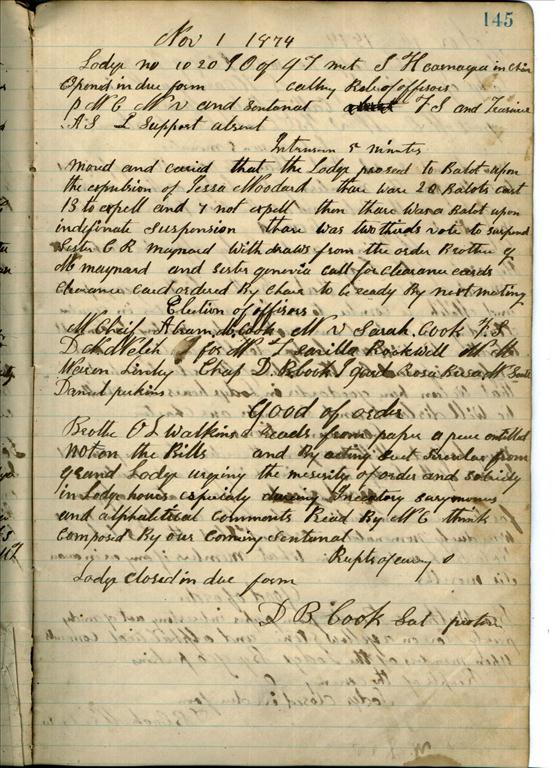 145
Nov 1 1874
Lodge no 1020 I O of G T met S H in Chair
Opend in due form calling Role of offisors
P W C W V and Sentanal F S and
A S L Support absent
Intrusion 5 minutes
moved and caried that the Lodge procead to Balot upon
the expulsion of Jessa Woodard thare ware 20 Balots cast
13 to expell and 7 not expell then thare was a Balot upon
indefinate Suspension thare was two thirds vote to suspend
Sister C R maynard withdraws from the order Brother
maynard and sister genevia Call for clearance cards
clearance card ordered By Chare to be ready By next meting
Election of offisors
W Cheif Abram Cook W V Sarah Cook F S
D Welch for W T Sarilla Rockwell W M
Maron Chap D B Cook I gard Rosa W
Daniel perkins
Good of order
Brothe O L Watkins Reads from paper a pece entitled
Not on the Bills and By acting sect from
grand Lodge urging the nesesity of order and
in Lodge hours espicaly during
and alphabetical comments Read By W C think
Composed By our Coming Sentanal
Lodge closed in due form
D B Cook